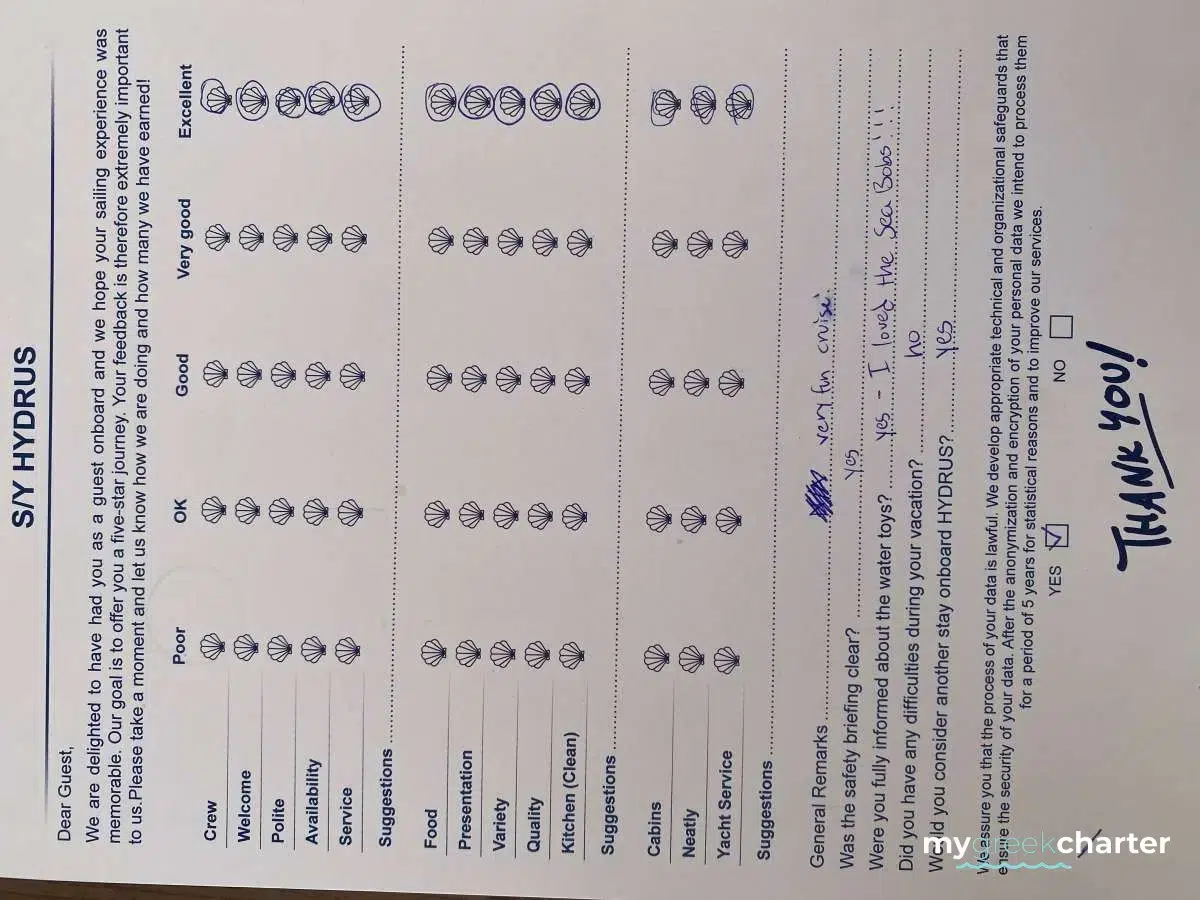 S/Y HYDRUS
Dear Guest,
We are delighted to have had you as a guest onboard and we hope your sailing experience was
memorable. Our goal is to offer you a five-star journey. Your feedback is therefore extremely important
to us.Please take a moment and let us know how we are doing and how many we have earned!
Poor OK Good Very good Excellent
Crew
Welcome
Polite
Availability
Service
Suggestions
Food
Presentation
Variety
Quality
Kitchen (Clean)
Suggestions
Cabins
Neatly
Yacht Service
Suggestions
General Remarks very fun cruise!
Was the safety briefing clear? yes
Were you fully informed about the water toys? yes - I loved the Sea Bobs!!!
Did you have any difficulties during your vacation? no
Would you consider another stay onboard HYDRUS? yes
We assure you that the process of your data is lawful. We develop appropriate technical and organizational safeguards that
ensure the security of your data. After the anonymization and encryption of your personal data we intend to process them
for a period of 5 years for statistical reasons and to improve our services.
YES NO
THANK YOU!
mygreekcharter